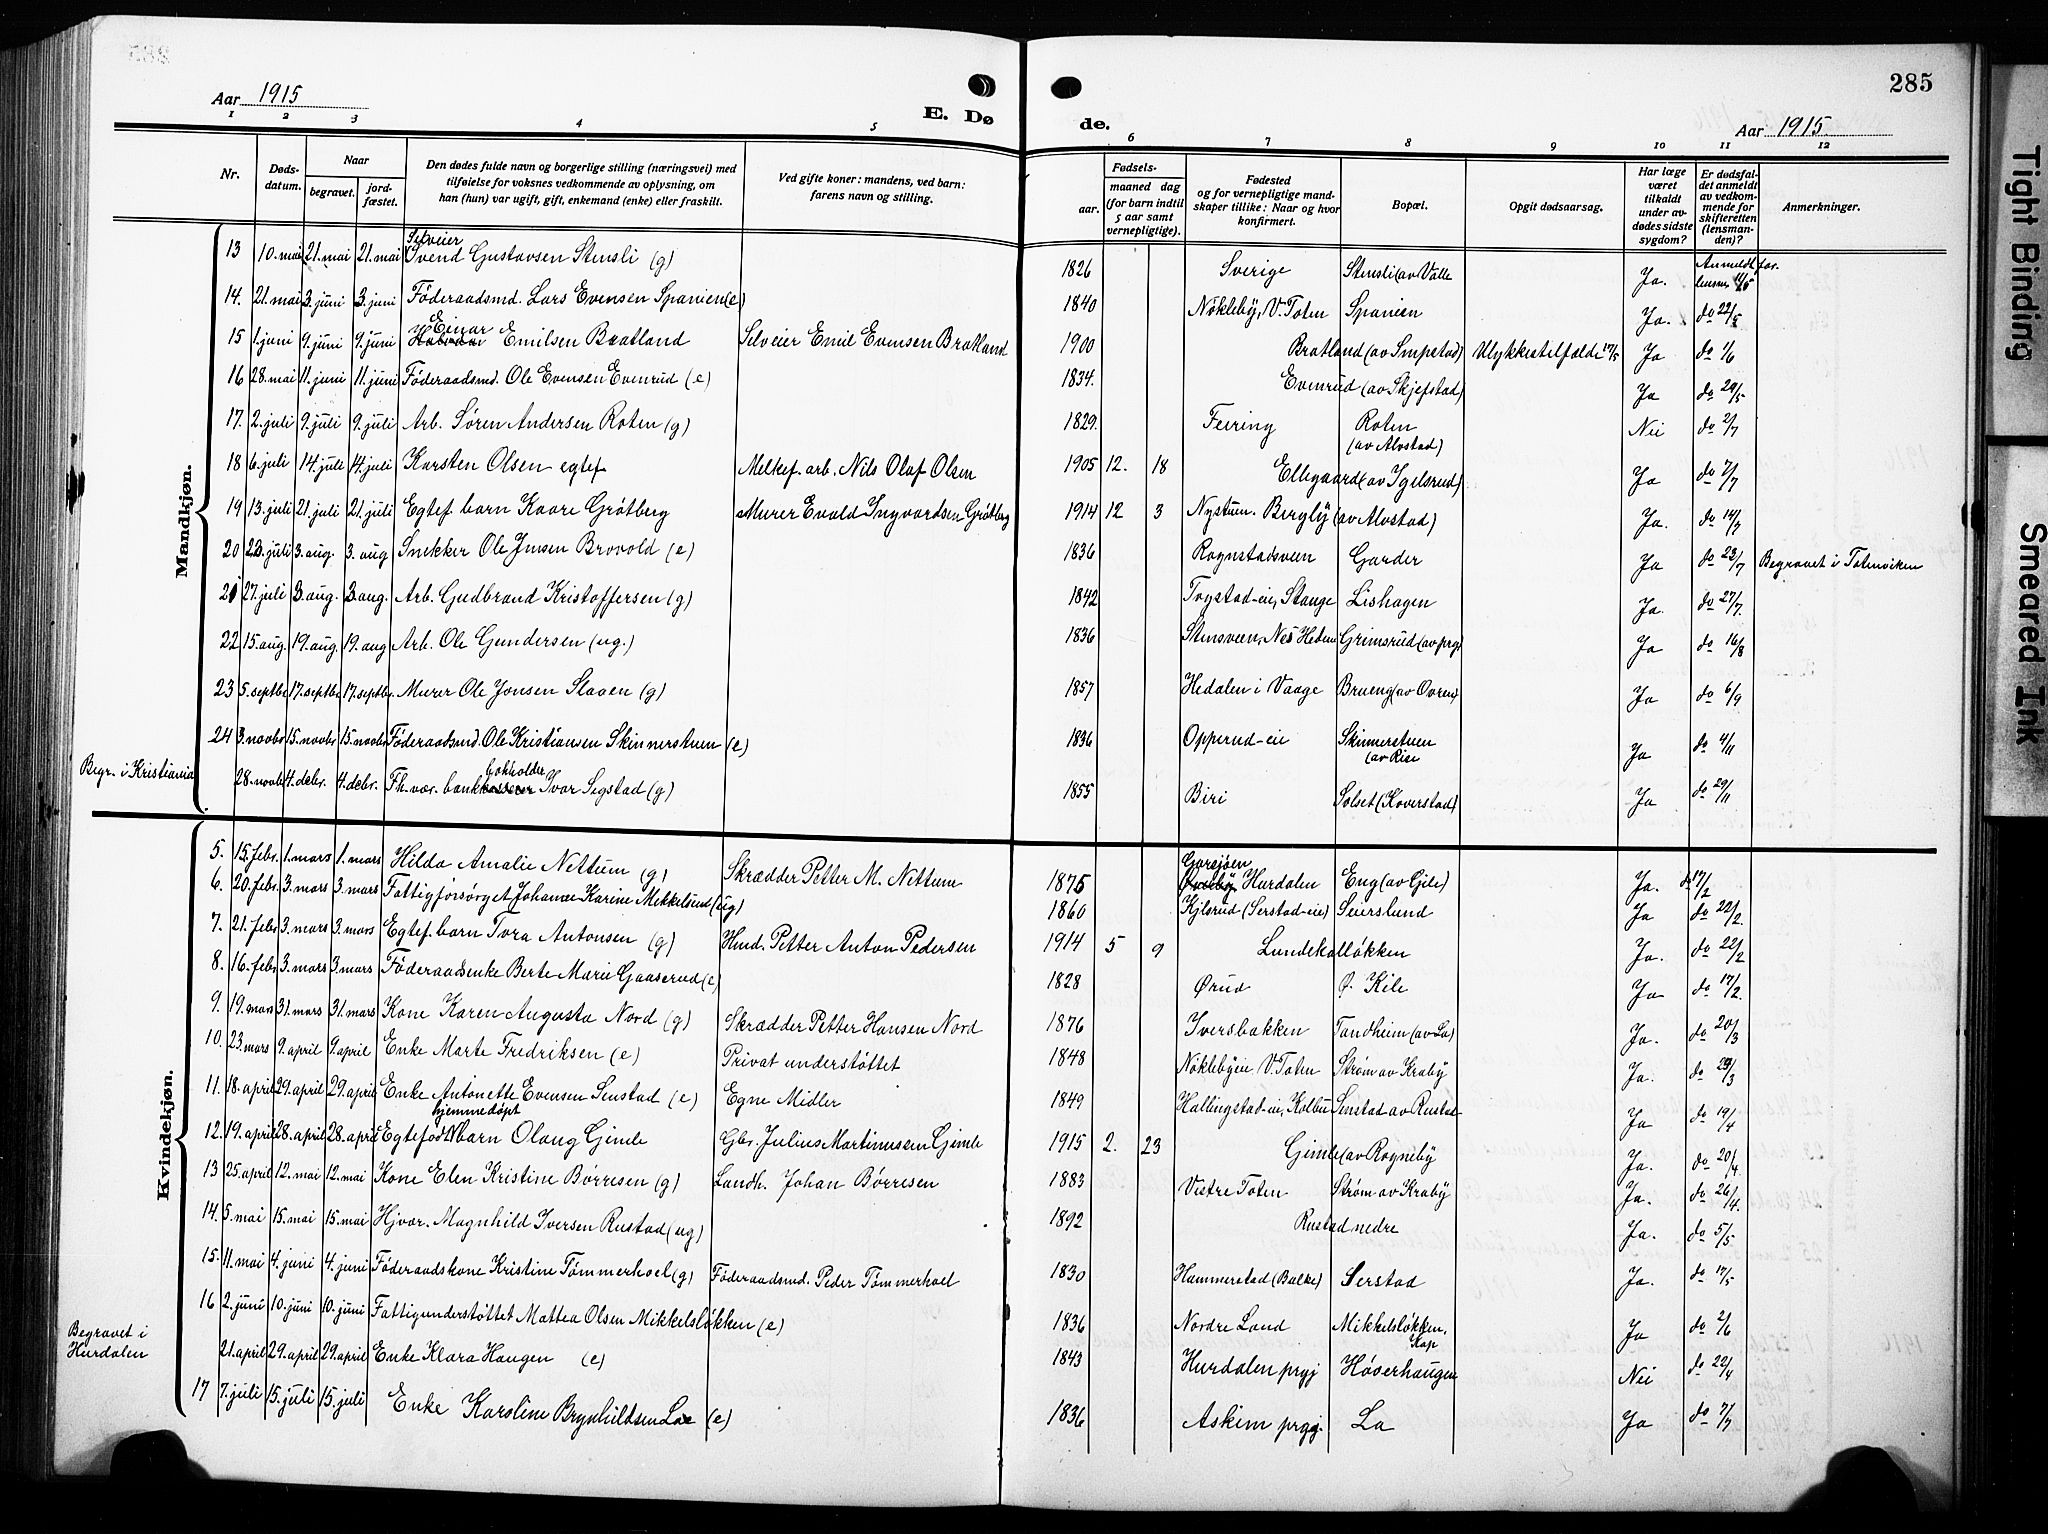 285
Aar 1915
E. Dø
de.
Aar 1915.
1 2 3 4 5 6 7 8 9 10 11 12
Nr.
Dødsdatum.
Naar
begravet.
jordfæstet.
Den dødes fulde navn og borgerlige stilling (næringsvei) med
tilføielse for voksnes vedkommende av oplysning, om
han (hun) var ugift, gift, enkemand (enke) eller fraskilt.
Ved gifte koner: mandens, ved barn:
farens navn og stilling.
Fødsels-
aar.
maaned dag
(for barn indtil
5 aar samt
vernepligtige).
Fødested
og for vernepligtige mandskaper tillike: Naar og hvor
konfirmert.
Bopæl.
Opgit dødsaarsag.
Har læge
været
tilkaldt
under avdødes sidste
sygdom?
Er dødsfaldet anmeldt
av vedkommende for
skifteretten
(lensmanden)?
Anmerkninger.
Mandkjøn.
13 10. mai 21. mai 21. mai Selveier Svend Gustavsen Stensli (g) 1826 Sverige Stensli (av Valle Ja. Anmeldt for lensm.
14. 21. mai 3. juni 3. juni Föderaadsmd. Lars Evensen Spanien (e) 1840 Nökleby, V. Toten Spanien Ja. do 22/5
15 1. juni 9. juni 9. juni Einar Emilsen Bratland Selveier Emil Evensen Bratland 1900 Bratland (av Smpstad) Ulykkestilfælde 17/5 Ja do 1/6
16 28. mai 11. juni 11. juni Föderaadsmd. Ole Evensen Evenrud (e) 1834. Evenrud (av Skjefstad) Ja do 29/5
17. 2. juli 9. juli 9. juli Arb. Søren Andersen Roten (g) 1829. Feiring Roten (av Alvstad) Nei do 2/7
18 6. juli 14. juli 14. juli Karsten Olsen egtef Melkef. arb. Nils Olaf Olsen 1905 12. 18 Ellegaard (av Igelsrud) Ja do 7/7
19 13. juli 21. juli 21. juli Egtef. barn Kaare Grötberg Murer Evald Ingvardsen Grötberg 1914 12 3 Nystuen. Bergly (av Alvstad) Ja. do 14/7
20 23. juli 3. aug. 3. aug Snekker Ole Jensen Brovold (e) 1836 Rognstadsveen Garder Ja do 23/7 Begravet i Totenviken
21 27. juli 3. aug. 3. aug. Arb. Gudbrand Kristoffersen (g) 1842 Frystad-eie, Stange Lishagen Ja. do 27/7.
22 15. aug. 19. aug. 19. aug Arb. Ole Gundersen (ug.) 1836 Stensveen, Nes Hedem Grimsrud (av prg) Ja do 16/8
23 5. septbr 17. septbr 17. septbr. Murer Ole Jonsen Slaaen (g) 1857 Hedalen i Vaage Brueng (av Ovren) Ja do 6/9
24 3. novbr 15. novbr 15. novbr Föderaadsmd. Ole Kristiansen Skinnerstuen (e) 1836 Opperud-eie Skinnerstuen (av Rise Ja do 4/11
Begr. i Kristiania 28. novbr 4. debr. 4. debr. Fh. vær. bankbokholder Ivar Segstad (g) 1855 Biri Solset (Koverstad) Ja do 29/11
Kvindekjøn.
5. 15. febr. 1. mars 1. mars Hilda Amalie Nettum (g) Skrædder Petter M. Nettum 1875 Garsjøen Hurdalen Eng (av Gjile) Ja. do 17/2
6. 20. febr. 3. mars 3. mars Fattigforsørget Johanne Karine Mikkelsund (ug) 1860 Kjlsrud (Serstad-eie) Seierslund Ja do 22/2.
7. 21. febr 3. mars 3. mars Egtef. barn Tora Antonsen (g) Hmd. Petter Anton Pedersen 1914 5 9 Lundekalløkken Ja. do 22/2
8. 16. febr 3. mars 3. mars Föderaadsenke Berte Marie Gaaserud (e) 1828 Ørud Ø. Kile Ja do 17/2.
9. 19. mars 31. mars 31. mars Kone Karen Augusta Nord (g) Skrædder Petter Hansen Nord 1876 Iversbakken Tandheim (av La) Ja. do 20/3
10. 23. mars 9. april 9. april Enke Marte Fredriksen (e) Privat understøttet 1848 Nöklebyeie V. Toten Strøm av Kraby Ja. do 23/3
11. 18. april 29. april 29. april Enke Antonette Evensen Senstad (e) Egne Midler 1849 Hallingstad-eie, Kolbu Senstad av Rustad Ja do 19/4
12. 19. april 28. april 28. april Egtefödt hjemmedöpt barn Olaug Gimle Gbr. Julius Martinussen Gimle 1915 2. 23 Gimle (av Rogneby Ja. do 20/4
13 25. april 12. mai 12. mai Kone Elen Kristine Börresen (g) Landh. Johan Börresen 1883 Vestre Toten Strøm av Kraby Ja. do 26/4.
14. 5. mai 15. mai 15. mai Hjvar. Magnhild Iversen Rustad (ug) 1892 Rustad nedre Ja. do 5/5
15. 11. mai 4. juni 4. juni Föderaadskone Kristine Tømmerhoel (g) Föderaadsmd. Peder Tømmerhoel 1830 Hammerstad (Balke) Serstad Ja. do 17/5
16 2. juni 10. juni 10. juni Fattigunderstøttet Mattea Olsen Mikkelsløkken (e) 1836 Nordre Land Mikkelsløkken, Kap Ja do 2/6
Begravet i Hurdalen 21. april 29. april 29. april Enke Klara Haugen (e) 1843 Hurdalen prgj Høverhaugen Nei do 22/4
17 7. juli 15. juli 15. juli Enke Karoline Brynhildsen Lae (e) 1836 Askim prgj. La Ja do 7/7
Tight Binding
Smeared Ink